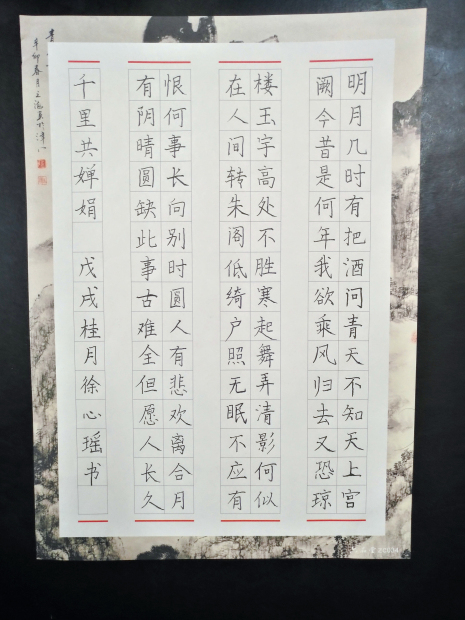 明月几时有把酒问青天不知天上宫
阙今昔是何年我欲乘风归去又恐琼
楼玉宇高处不胜寒起舞弄清影何似
在人间转朱阁低绮户照无眠不应有
恨何事长向别时圆人有悲欢离合月
有阴晴圆缺此事古难全但愿人长久
千里共婵娟 戊戌桂月徐心瑶书
辛卯春月